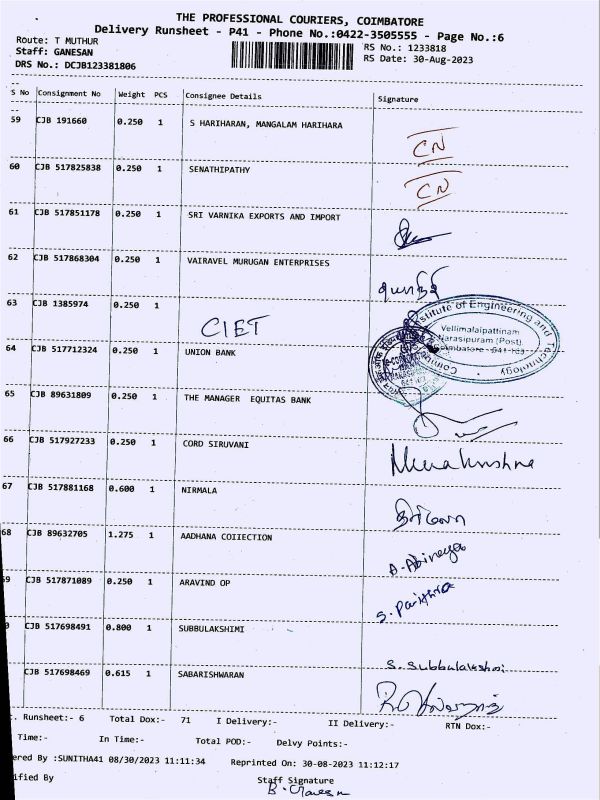 THE PROFESSIONAL COURIERS, COIMBATORE
Delivery Runsheet - P41 - Phone No.:0422-3505555 - Page No.:6
Route: T MUTHUR
RS No.: 1233818
Staff: GANESAN
RS Date: 30-Aug-2023
DRS No.: DCJB123381806
S No Consignment No Weight PCS Consignee Details Signature
59 CJB 191660 0.250 1 S HARIHARAN, MANGALAM HARIHARA
CN
60 CJB 517825838 0.250 1 SENATHIPATHY
CN
61 CJB 517851178 0.250 1 SRI VARNIKA EXPORTS AND IMPORT
62 CJB 517868304 0.250 1 VAIRAVEL MURUGAN ENTERPRISES
63 CJB 1385974 0.250 1
CIET
Institute of Engineering and Technology
Vellimalaipattinam
Narasipuram (Post)
Coimbatore - 641 103
64 CJB 517712324 0.250 1 UNION BANK
65 CJB 89631809 0.250 1 THE MANAGER EQUITAS BANK
66 CJB 517927233 0.250 1 CORD SIRUVANI
67 CJB 517881168 0.600 1 NIRMALA
நிர்மலா
68 CJB 89632705 1.275 1 AADHANA COIIECTION
A. Abinaya
69 CJB 517871089 0.250 1 ARAVIND OP
S. Pavithra
CJB 517698491 0.800 1 SUBBULAKSHIMI
S. Subbulakshmi
CJB 517698469 0.615 1 SABARISHWARAN
. Runsheet:- 6 Total Dox:- 71 I Delivery:- II Delivery:- RTN Dox:-
Time:- In Time:- Total POD:- Delvy Points:-
ered By :SUNITHA41 08/30/2023 11:11:34 Reprinted On: 30-08-2023 11:12:17
ified By Staff Signature
B. Ganesan